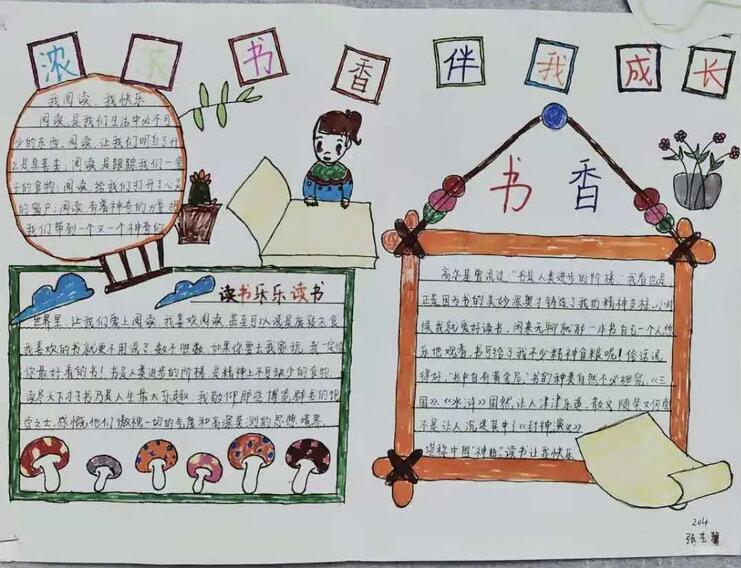 浓浓书香伴我成长
我阅读、我快乐
阅读,是我们生活中必不可
少的东西,阅读、让我们明白了什
么是真善美;阅读是跟踪我们一辈
子的食物;阅读、给我们打开了心灵
的窗户;阅读,有着神奇的力量,把
我们带到一个又一个神奇的
读书乐乐读书
世界里。让我们爱上阅读。我喜欢阅读,甚至可以说是废寝忘食
我喜欢的书就更不用说了,数不胜数,如果你要去我家玩,我一定给
你最好看的书!书是人类进步的阶梯,是精神上不可缺少的食物,
读尽天下才子书乃是人生最大乐趣,我敬仰那些博览群书的
之士,感慨他们傲视一切的态度和高深莫测的思想境界。
书香
高尔基曾说过:“书是人类进步的阶梯。”我看也是
正是因为书的美妙深奥才铸造了我的精神支柱。小时
候我就爱好读书,闲来无聊就那一本书自己一个人傻
乐地观看,书可给了我不少精神食粮呢!俗话说
得好,“书中自有黄金屋”书的种类自然不必细究,《三
国》、《水浒》固然,让人津津乐道,散文,随笔又何尝
不是让人沉迷其中《封神演义》
堪称中国“神典”读书让我快乐
204
张艺馨